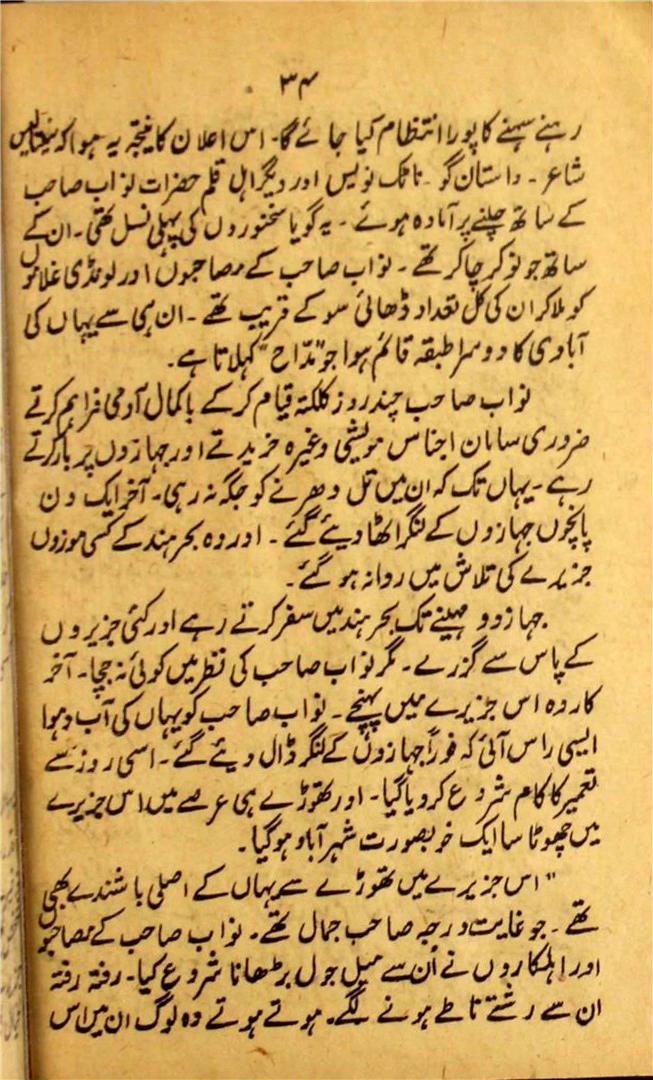 ۳۴
رہنے سہنے کا پورا انتظام کیا جائے گا۔ اس اعلان کا نتیجہ یہ ہوا کہ سینتالیس
شاعر۔ داستان گو۔ ناٹک نویس اور دیگر اہل قلم حضرات نواب صاحب
کے ساتھ چلنے پر آمادہ ہوئے۔ یہ گویا سخنوروں کی پہلی نسل تھی۔ ان کے
ساتھ جو نوکر چاکر تھے۔ نواب صاحب کے مصاحبوں اور لونڈی غلاموں
کو ملا کر ان کی کل تعداد ڈھائی سو کے قریب تھے۔ ان ہی سے یہاں کی
آبادی کا دوسرا طبقہ قائم ہوا جو "مدّاح" کہلاتا ہے۔
نواب صاحب چند روز کلکتہ قیام کر کے باکمال آدمی فراہم کرتے
ضروری سامان اجناس مویشی وغیرہ خریدتے اور جہازوں پر بار کرتے
رہے۔ یہاں تک کہ ان میں تل دھرنے کو جگہ نہ رہی۔ آخر ایک دن
پانچوں جہازوں کے لنگر اٹھا دیئے گئے۔ اور وہ بحر ہند کے کسی موزوں
جزیرے کی تلاش میں روانہ ہو گئے۔
جہاز دو مہینے تک بحر ہند میں سفر کرتے رہے اور کئی جزیروں
کے پاس سے گزرے۔ مگر نواب صاحب کی نظر میں کوئی نہ جچا۔ آخر
کار وہ اس جزیرے میں پہنچے۔ نواب صاحب کو یہاں کی آب و ہوا
ایسی راس آئی کہ فوراً جہازوں کے لنگر ڈال دیئے گئے۔ اسی روز سے
تعمیر کا کام شروع کر دیا گیا۔ اور تھوڑے ہی عرصے میں اس جزیرے
میں چھوٹا سا ایک خوبصورت شہر آباد ہو گیا۔
"اس جزیرے میں تھوڑے سے یہاں کے اصلی باشندے بھی
تھے۔ جو غایت درجہ صاحب جمال تھے۔ نواب صاحب کے مصاحبوں
اور اہلکاروں نے اُن سے میل جول بڑھانا شروع کیا۔ رفتہ رفتہ
ان سے رشتے ناطے ہونے لگے۔ ہوتے ہوتے وہ لوگ ان میں اس